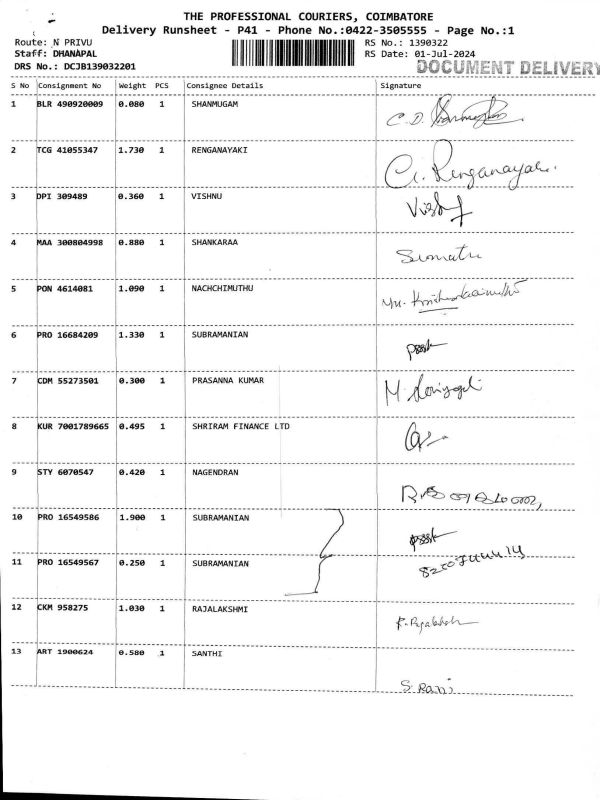 THE PROFESSIONAL COURIERS, COIMBATORE
Delivery Runsheet - P41 - Phone No.:0422-3505555 - Page No.:1
Route: N PRIVU RS No.: 1390322
Staff: DHANAPAL RS Date: 01-Jul-2024
DRS No.: DCJB139032201 DOCUMENT DELIVERY
S No Consignment No Weight PCS Consignee Details Signature
1 BLR 490920009 0.080 1 SHANMUGAM C.D.
2 TCG 41055347 1.730 1 RENGANAYAKI
3 DPI 309489 0.360 1 VISHNU
4 MAA 300804998 0.880 1 SHANKARAA Sumathi
5 PON 4614081 1.090 1 NACHCHIMUTHU
6 PRO 16684209 1.330 1 SUBRAMANIAN
7 CDM 55273501 0.300 1 PRASANNA KUMAR
8 KUR 7001789665 0.495 1 SHRIRAM FINANCE LTD
9 STY 6070547 0.420 1 NAGENDRAN
10 PRO 16549586 1.900 1 SUBRAMANIAN
11 PRO 16549567 0.250 1 SUBRAMANIAN
12 CKM 958275 1.030 1 RAJALAKSHMI
13 ART 1900624 0.580 1 SANTHI S. Rani